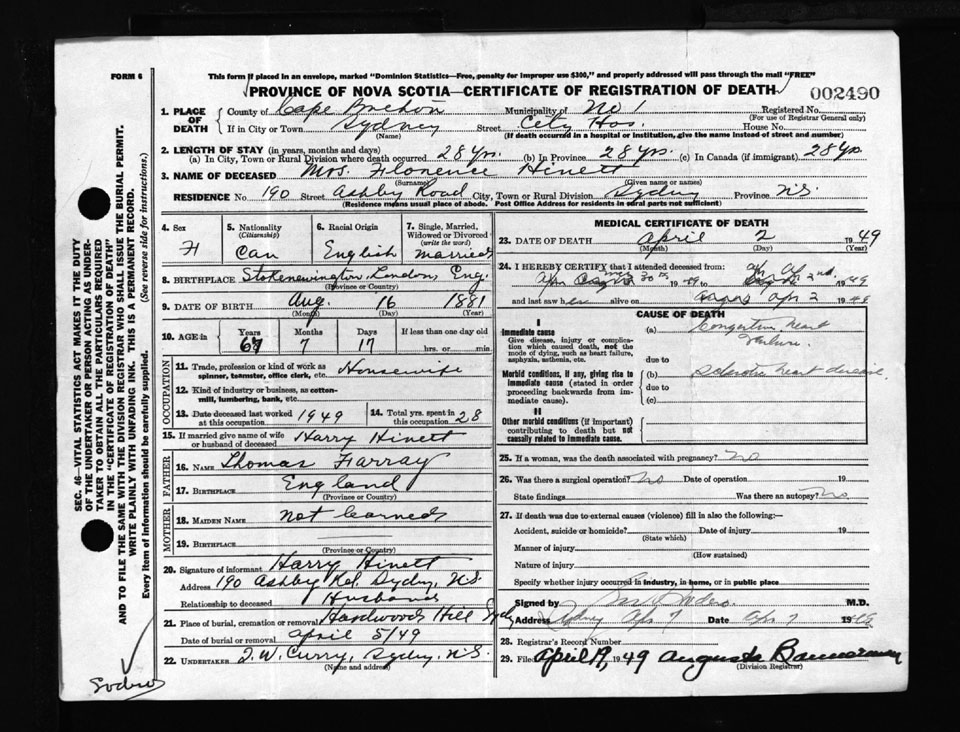 FORM 6
This form if placed in an envelope, marked "Dominion Statistics—Free, penalty for improper use $300," and properly addressed will pass through the mail "FREE"
PROVINCE OF NOVA SCOTIA—CERTIFICATE OF REGISTRATION OF DEATH
002490
1. PLACE OF DEATH
County of Cape Breton Municipality of No 1 Registered No.
(For use of Registrar General only)
If in City or Town Sydney Street City Hos. House No.
(Name) (If death occurred in a hospital or institution, give the name instead of street and number)
2. LENGTH OF STAY (in years, months and days)
(a) In City, Town or Rural Division where death occurred 28 yrs. (b) In Province 28 yrs. (c) In Canada (if immigrant) 28 yrs
3. NAME OF DECEASED Mrs. Florence Hinett
(Surname) (Given name or names)
RESIDENCE No 190 Street Ashby Road City, Town or Rural Division Sydney Province N.S.
(Residence means usual place of abode. Post Office Address for residents in rural parts not sufficient)
4. Sex
F
5. Nationality
(Citizenship)
Can
6. Racial Origin
English
7. Single, Married, Widowed or Divorced
(write the word)
Married
8. BIRTHPLACE Stokenewington, London, Eng.
(Province or Country)
9. DATE OF BIRTH Aug. 16 1881
(Month) (Day) (Year)
10. AGE in
Years Months Days If less than one day old
67 7 17 hrs. or min.
OCCUPATION
11. Trade, profession or kind of work as spinner, teamster, office clerk, etc. Housewife
12. Kind of industry or business, as cotton-mill, lumbering, bank, etc.
13. Date deceased last worked at this occupation 1949
14. Total yrs. spent in this occupation 28
15. If married give name of wife or husband of deceased Harry Hinett
FATHER
16. NAME Thomas Farray
17. BIRTHPLACE England
(Province or Country)
MOTHER
18. MAIDEN NAME Not learned
19. BIRTHPLACE
(Province or Country)
20. Signature of informant Harry Hinett
Address 190 Ashby Rd. Sydney, N.S.
Relationship to deceased Husband
21. Place of burial, cremation or removal Hardwood Hill Sydney
Date of burial or removal April 5/49
22. UNDERTAKER J. W. Curry, Sydney, N.S.
(Name and address)
MEDICAL CERTIFICATE OF DEATH
23. DATE OF DEATH April 2 1949
(Month) (Day) (Year)
24. I HEREBY CERTIFY that I attended deceased from:
30th 1949 2nd. 1949
and last saw her alive on Apr 2 1949
CAUSE OF DEATH
I
Immediate cause
Give disease, injury or complication which caused death, not the mode of dying, such as heart failure, asphyxia, asthenia, etc.
(a) Congestive heart failure.
due to
Morbid conditions, if any, giving rise to immediate cause (stated in order proceeding backwards from immediate cause).
(b) Sclerotic heart disease.
due to
(c)
II
Other morbid conditions (if important) contributing to death but not causally related to immediate cause.
25. If a woman, was the death associated with pregnancy? No
26. Was there a surgical operation? No Date of operation 19
State findings Was there an autopsy? No
27. If death was due to external causes (violence) fill in also the following:—
Accident, suicide or homicide? Date of injury 19
(State which)
Manner of injury
(How sustained)
Nature of injury
Specify whether injury occurred in industry, in home, or in public place
Signed by M.D.
Address Sydney Date Apr 7 19
28. Registrar's Record Number
29. Filed April 19, 1949 Bannerman
(Division Registrar)
SEC. 46—VITAL STATISTICS ACT MAKES IT THE DUTY
OF THE UNDERTAKER OR PERSON ACTING AS UNDER-
TAKER TO OBTAIN ALL THE PARTICULARS REQUIRED
IN THE "CERTIFICATE OF REGISTRATION OF DEATH"
AND TO FILE THE SAME WITH THE DIVISION REGISTRAR WHO SHALL ISSUE THE BURIAL PERMIT.
WRITE PLAINLY WITH UNFADING INK. THIS IS A PERMANENT RECORD.
Every item of information should be carefully supplied. (See reverse side for instructions.)